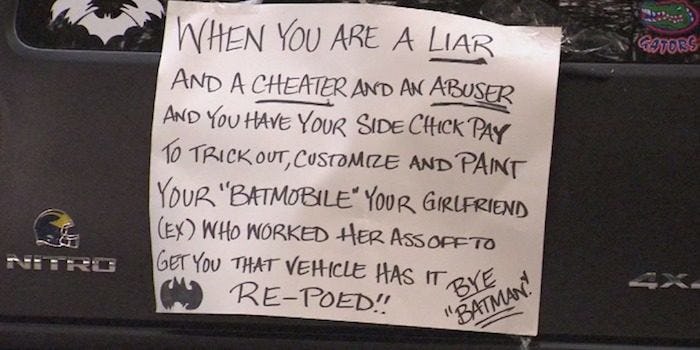 GATORS
WHEN YOU ARE A LIAR
AND A CHEATER AND AN ABUSER
AND YOU HAVE YOUR SIDE CHICK PAY
TO TRICK OUT, CUSTOMIZE AND PAINT
YOUR "BATMOBILE" YOUR GIRLFRIEND
(EX) WHO WORKED HER ASS OFF TO
GET YOU THAT VEHICLE HAS IT
RE-POED!!
BYE
"BATMAN"!
NITRO
4X